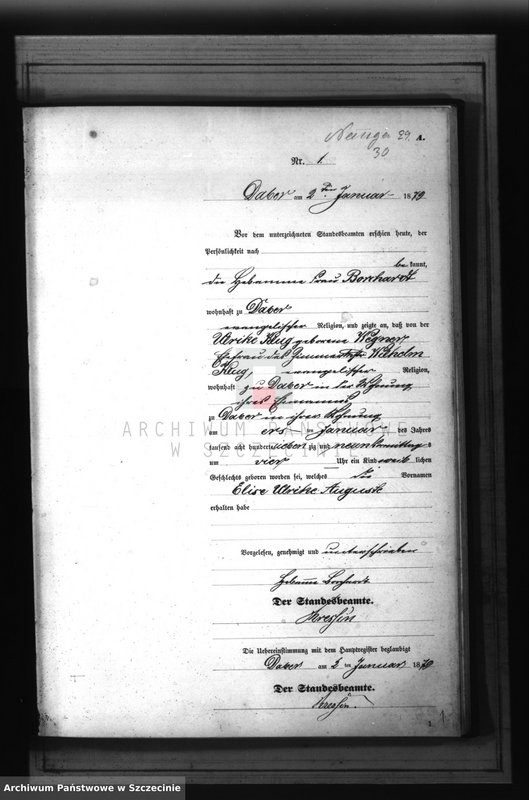 Nauga 29. A.
30
Nr. 1
Daber am 2ten Januar 1879
Vor dem unterzeichneten Standesbeamten erschien heute, der
Persönlichkeit nach
be kannt,
die Hebamme Frau Borchardt
wohnhaft zu Daber
evangelischer Religion, und zeigte an, daß von der
Ulrike Klug geborene Wegner
Ehefrau des Wilhelm
Klug, evangelischer Religion,
wohnhaft zu Daber in der Wohnung
ihres
zu Daber in ihrer Wohnung
am ersten Januar des Jahres
tausend acht hundert sieben zig und neun Vormittags
um vier Uhr ein Kind weib lichen
Geschlechts geboren worden sei, welches die Vornamen
Elise Ulrike Auguste
erhalten habe
Vorgelesen, genehmigt und unterschrieben
Hebamme Borchardt
Der Standesbeamte.
Kressin
Die Uebereinstimmung mit dem Hauptregister beglaubigt
Daber am 2 ten Januar 1879
Der Standesbeamte.
Kressin.
1
ARCHIWUM PAŃSTWOWE
W SZCZECINIE
Archiwum Państwowe w Szczecinie